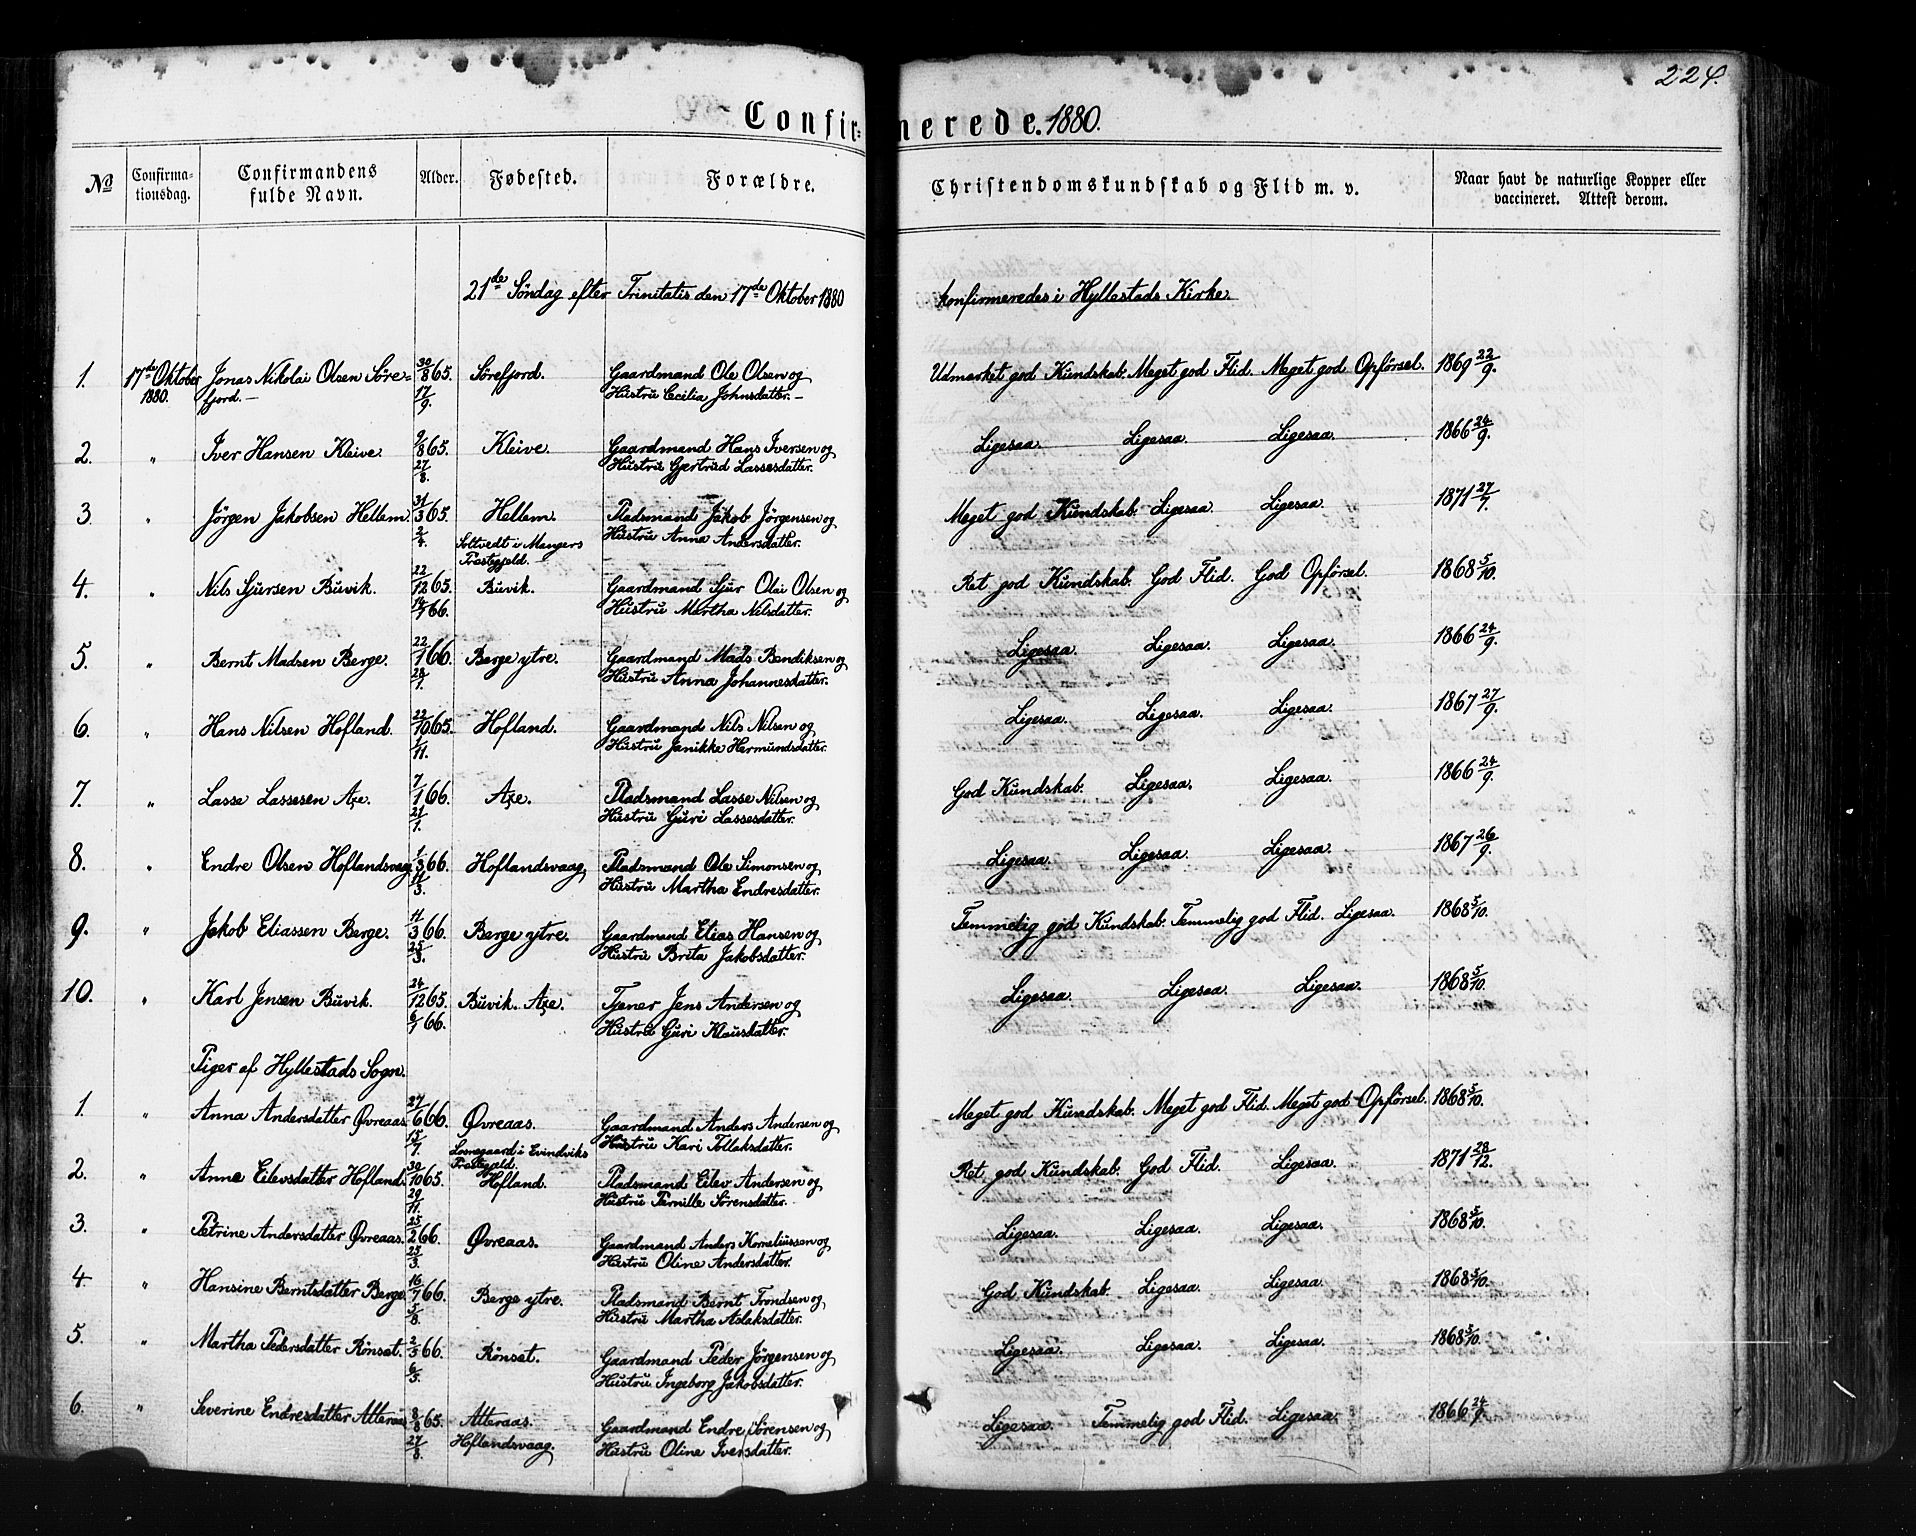 224.
Confirmerede. 1880.
No Confirmationsdag. Confirmandens fulde Navn. Alder. Fødested. Forældre. Christendomskundskab og Flid m. v. Naar havt de naturlige Kopper eller vaccineret. Attest derom.
21de Söndag efter Trinitatis den 17de Oktober 1880 konfirmeredes i Hyllestads Kirke.
1. 17de Oktober Jonas Nikolai Olsen Söre- 30/8 65. Sörefjord. Gaardmand Ole Olsen og Udmærket god Kundskab. Meget god Flid. Meget god Opförsel. 1869 22/9.
1880. fjord. — 17/9. Hustru Cecilia Johnsdatter. —
2. " Iver Hansen Kleive. 9/8 65. Kleive. Gaardmand Hans Iversen og Ligesaa. Ligesaa. Ligesaa. 1866 24/9.
27/8. Hustru Gjertrud Lassesdatter.
3. " Jörgen Jakobsen Hellem. 31/3 65. Hellem. Pladsmand Jakob Jörgensen og Meget god Kundskab. Ligesaa. Ligesaa. 1871 27/7.
2/4. Hustru Anna Andersdatter.
Soltvedt i Mangers
Præstegjeld.
4. " Nils Sjursen Buvik. 22/12 65. Buvik. Gaardmand Sjur Olai Olsen og Ret god Kundskab. God Flid. God Opförsel. 1868 5/10.
14/1 66. Hustru Martha Nilsdatter.
5. " Bernt Madsen Berge. 22/1 66. Berge ytre. Gaardmand Mads Bendiksen og Ligesaa. Ligesaa. Ligesaa. 1866 24/9.
28/1. Hustru Anna Johannesdatter.
6. " Hans Nilsen Hofland. 22/10 65. Hofland. Gaardmand Nils Nilsen og Ligesaa. Ligesaa. Ligesaa. 1867 27/9.
1/11. Hustru Janikke Hermundsdatter.
7. " Lasse Lassesen Axe. 7/1 66. Axe. Pladsmand Lasse Nilsen og God Kundskab. Ligesaa. Ligesaa. 1866 24/9.
21/1. Hustru Guri Lassesdatter.
8. " Endre Olsen Hoflandsvaag. 1/3 66. Hoflandsvaag. Pladsmand Ole Simonsen og Ligesaa. Ligesaa. Ligesaa. 1867 26/9.
11/3. Hustru Martha Endresdatter.
9. " Jakob Eliassen Berge. 11/3 66. Berge ytre. Gaardmand Elias Hansen og Temmelig god Kundskab. Temmelig god Flid. Ligesaa. 1868 5/10.
25/3. Hustru Brita Jakobsdatter.
10. " Karl Jensen Buvik. 24/12 65. Buvik. Axe. Tjener Jens Andersen og Ligesaa. Ligesaa. Ligesaa. 1868 5/10.
6/1 66. Hustru Guri Klausdatter.
Piger af Hyllestads Sogn.
1. " Anna Andersdatter Øvreaas. 27/6 66. Øvreaas. Gaardmand Anders Andersen og Meget god Kundskab. Meget god Flid. Meget god Opförsel. 1868 5/10.
15/7. Hustru Kari Tollaksdatter.
Losnegaard i Evindviks
Præstegjeld.
2. " Anne Eilevsdatter Hofland. 30/10 65. Hofland. Pladsmand Eilev Andersen og Ret god Kundskab. God Flid. Ligesaa. 1871 28/12.
29/11. Hustru Pernille Sörensdatter.
3. " Petrine Andersdatter Øvreaas. 25/2 66. Øvreaas. Gaardmand Anders Korneliussen og Ligesaa. Ligesaa. Ligesaa. 1868 5/10.
25/3. Hustru Oline Andersdatter.
4. " Hansine Berntsdatter Berge. 16/7 66. Berge ytre. Pladsmand Bernt Trondsen og God Kundskab. Ligesaa. Ligesaa. 1868 5/10.
5/8. Hustru Martha Aslaksdatter.
5. " Martha Pedersdatter Rönset. 2/5 66. Rönset. Gaardmand Peder Jörgensen og Ligesaa. Ligesaa. Ligesaa. 1868 5/10.
6/5. Hustru Ingeborg Jakobsdatter.
6. " Severine Endresdatter Atteraas 8/8 65. Atteraas. Gaardmand Endre Sörensen og Ligesaa. Temmelig god Flid. Ligesaa. 1866 24/9.
27/8. Hoflandsvaag. Hustru Oline Iversdatter.